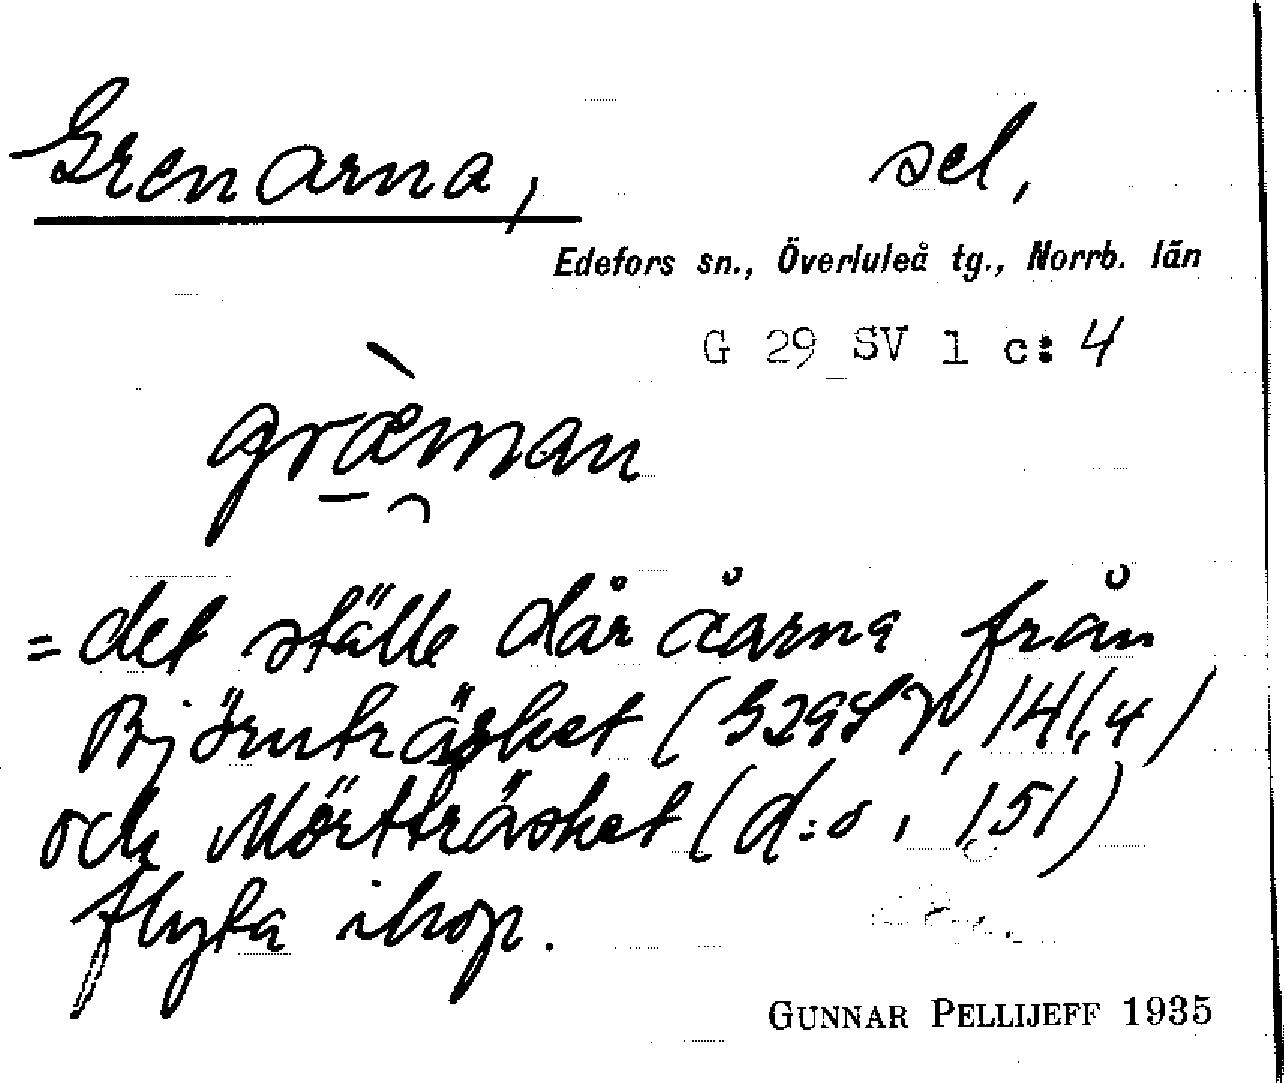 Grenarna, sel,
Edefors sn., Överluleå tg., Norrb. län
G 29 SV 1 c: 4
græ̀man
= det ställe där åarna från
Björnträsket (G29SV, 141,4)
och Mörtträsket (d:o, 151)
flyta ihop.
GUNNAR PELLIJEFF 1935